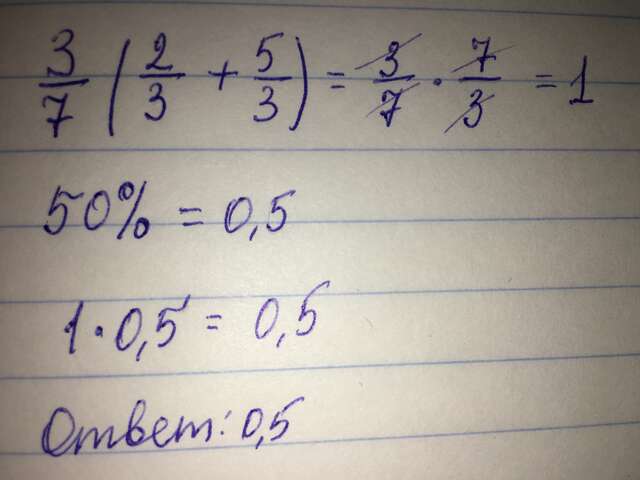 3/7 (2/3 + 5/3) = 3/7 · 7/3 = 1
50% = 0,5
1 · 0,5 = 0,5
Ответ: 0,5